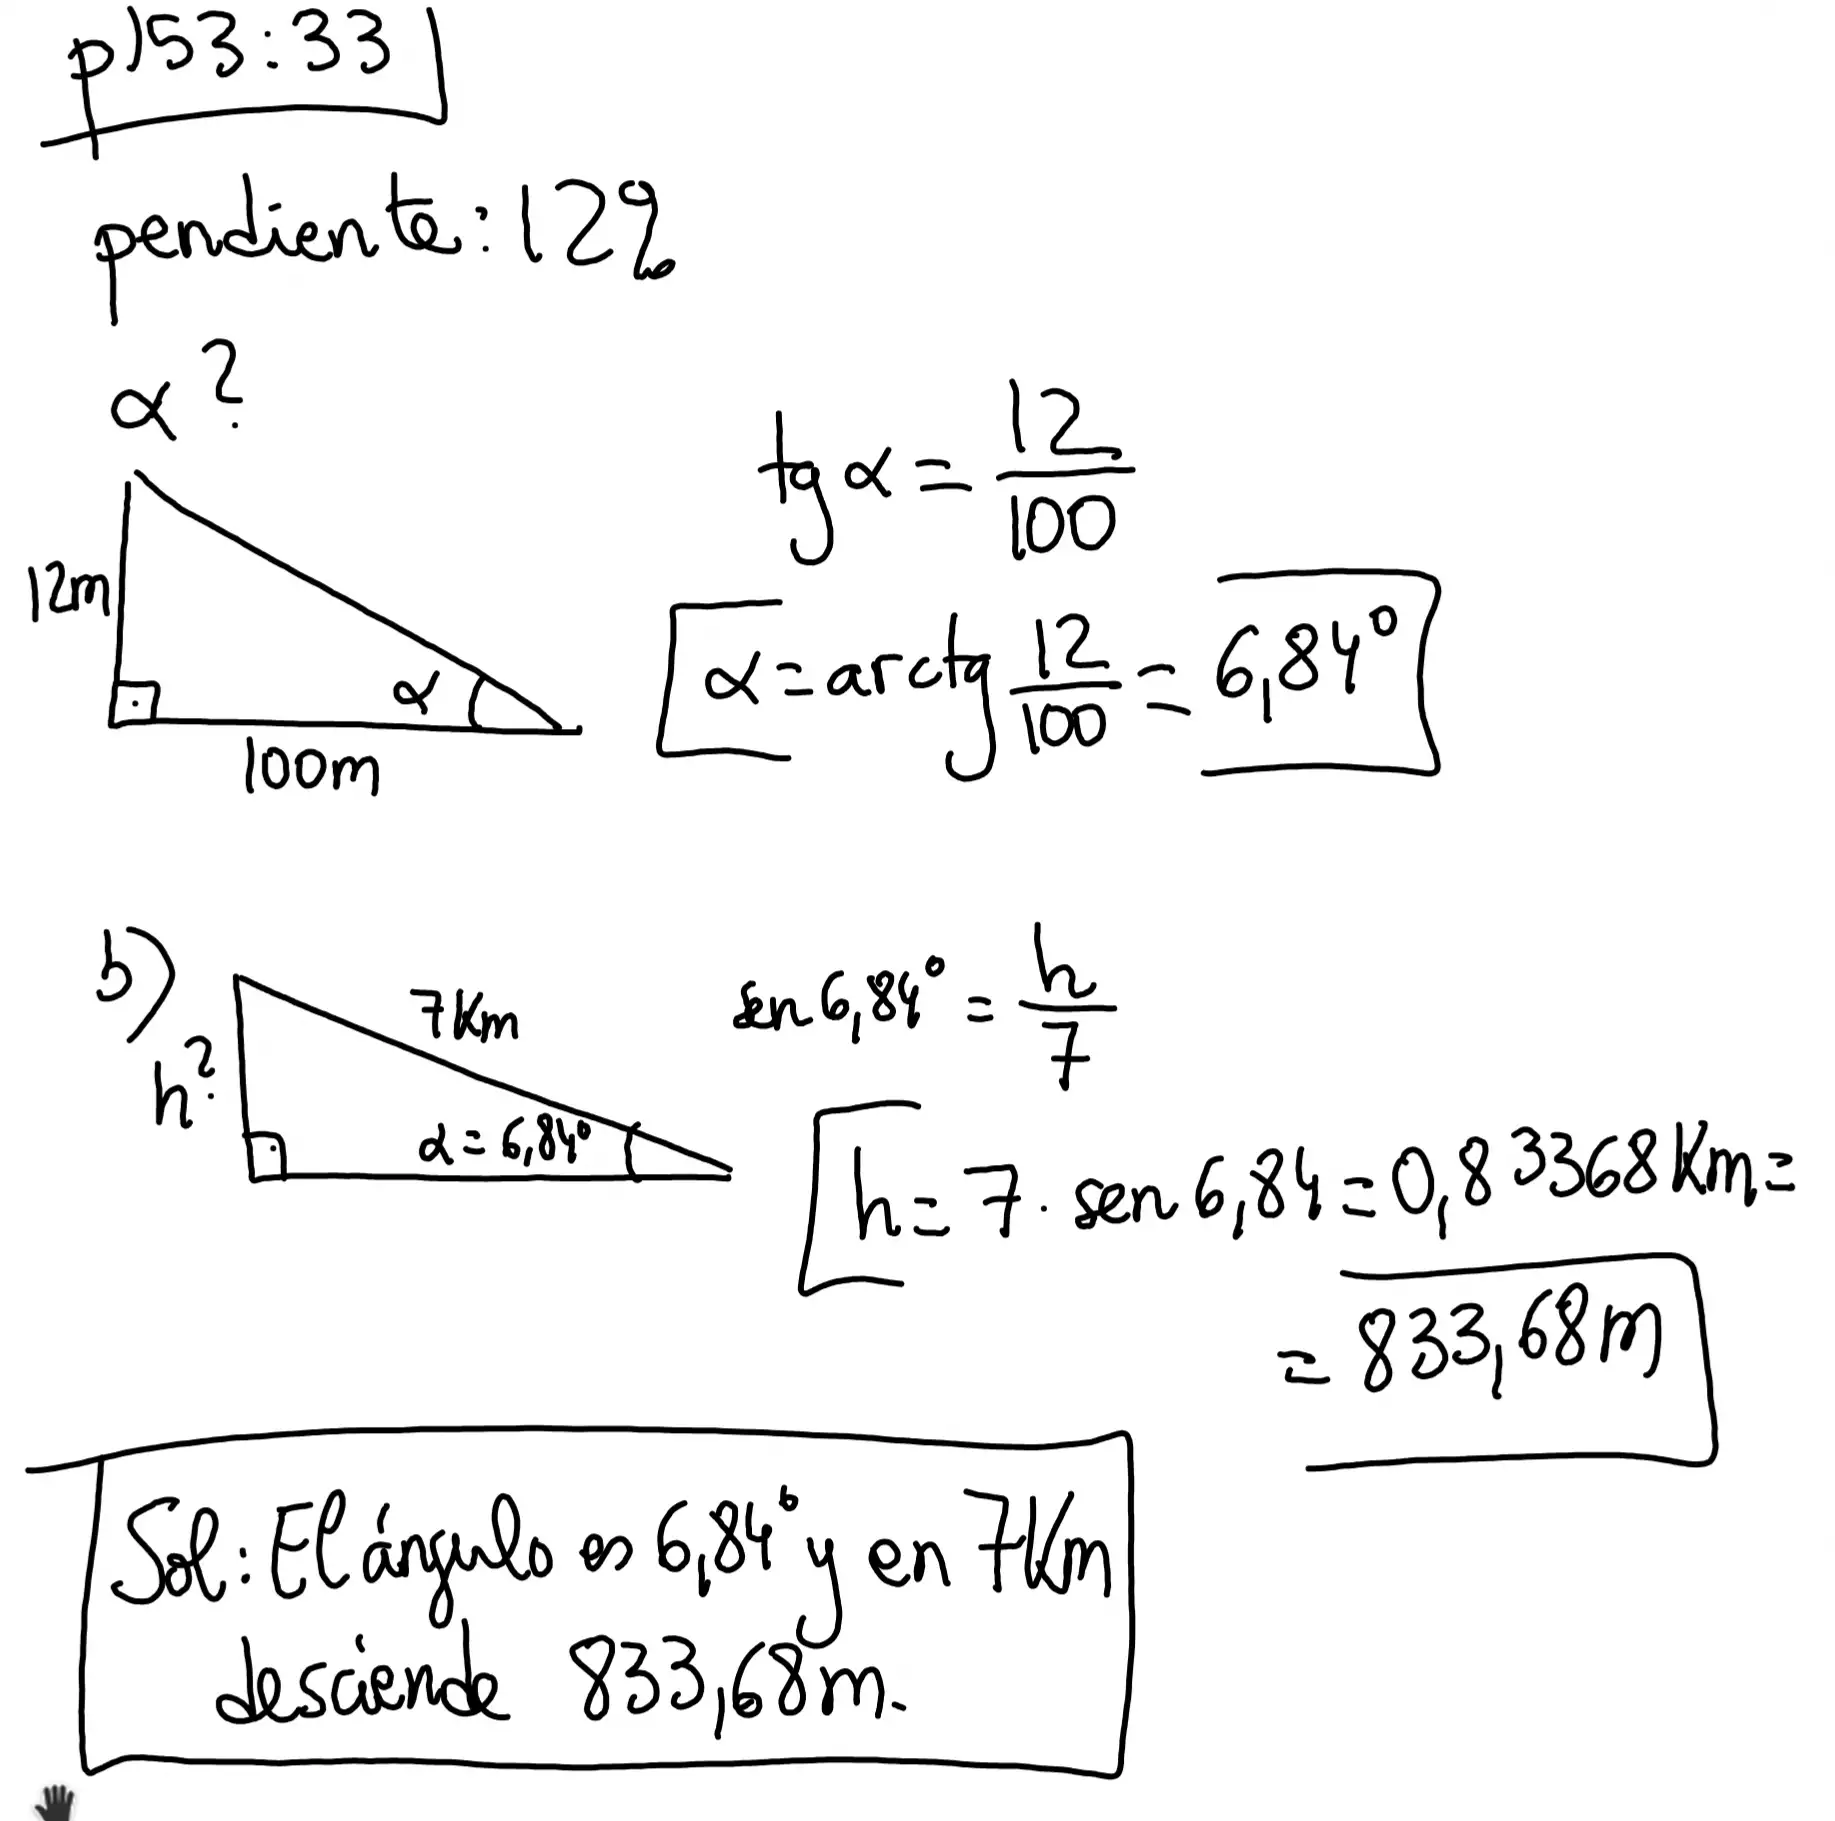 p153:33
pendiente: 12%
α?
12m
α
100m
tg α = 12/100
α = arctg 12/100 = 6,84º
b)
h?
7Km
α = 6,84º
sen 6,84º = h/7
h = 7 · sen 6,84 = 0,83368 Km =
= 833,68 m
Sol: El ángulo es 6,84º y en 7Km
desciende 833,68 m.